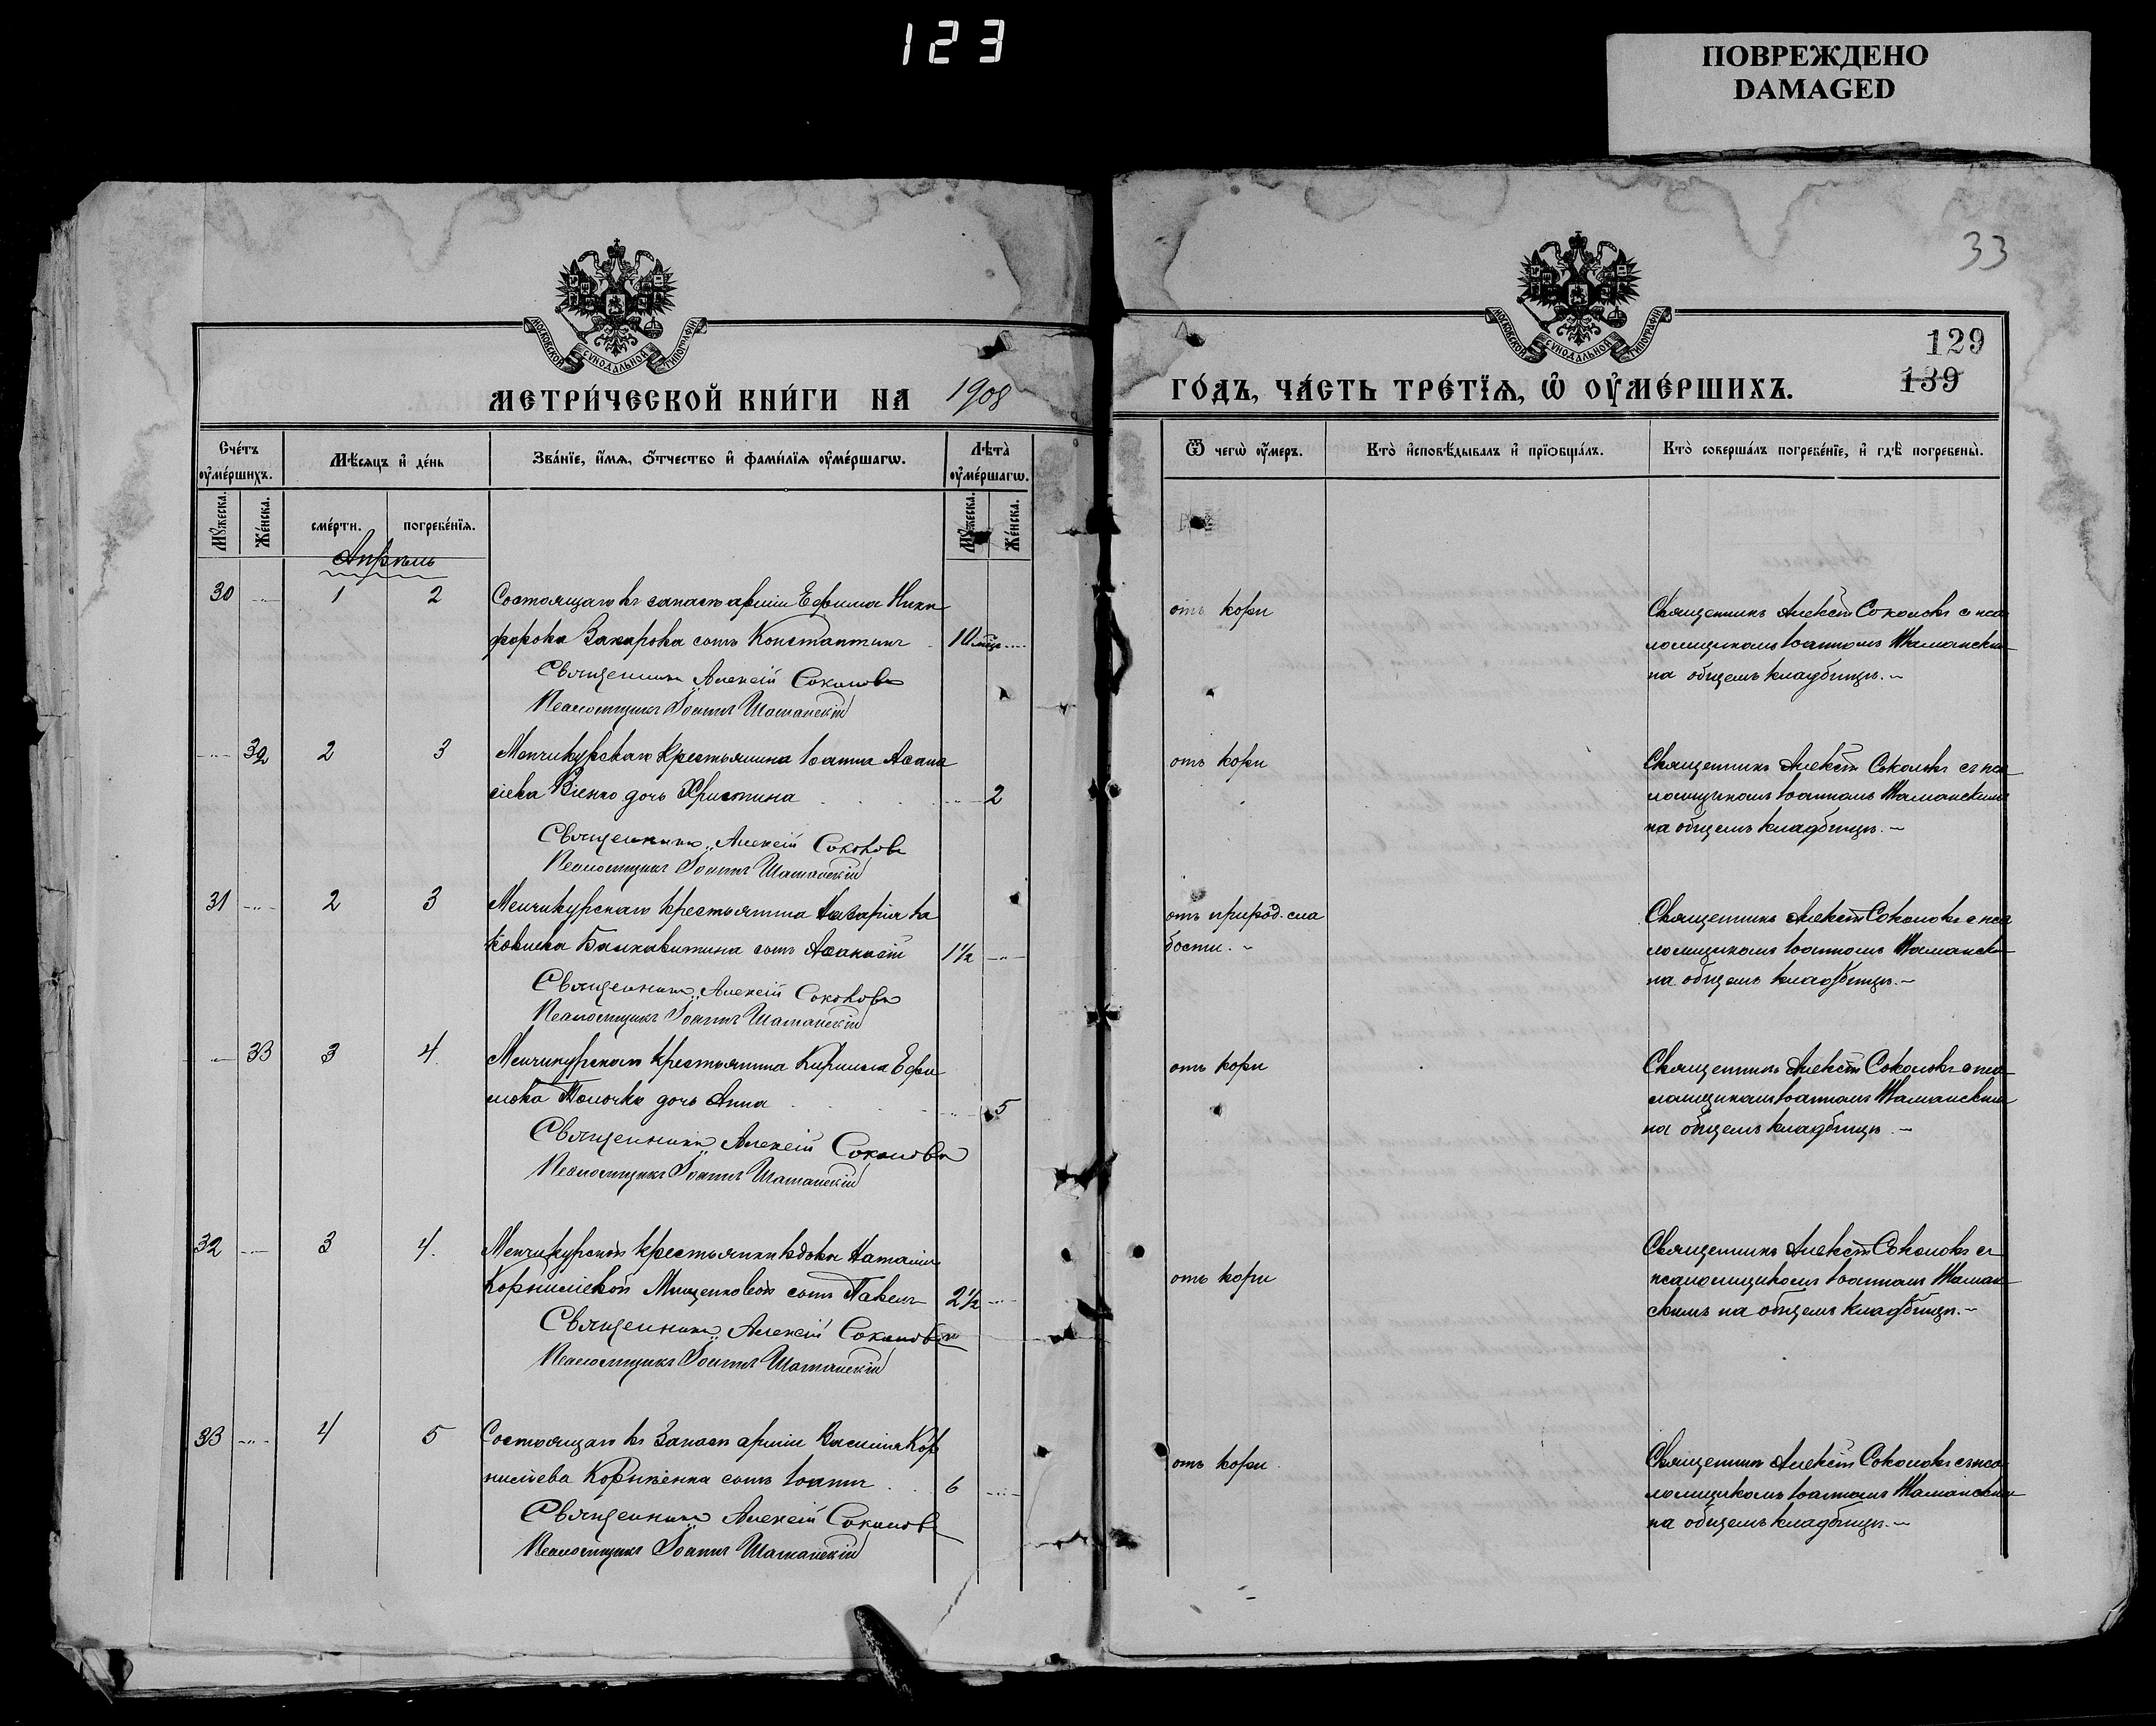 123
ПОВРЕЖДЕНО
DAMAGED
33
МОСКОВСКОЙ СѴНОДАЛЬНОЙ ТИПОГРАФІИ
МОСКОВСКОЙ СѴНОДАЛЬНОЙ ТИПОГРАФІИ
129
139
МЕТРИ́ЧЕСКОЙ КНИ́ГИ НА 1908
ГО́ДЪ, ЧА́СТЬ ТРЕ́ТІѦ, Ѡ҆ ОУ҆МЕ́РШИХЪ.
Сче́тъ оу҆ме́ршихъ.
Мѣ́сяцъ и҆ де́нь
Зва́нїе, и҆́мя, ѻ҆́тчество и҆ фами́лїя оу҆ме́ршагѡ.
Лѣта̀ оу҆ме́ршагѡ.
Ѿ чегѡ̀ оу҆́меръ.
Кто̀ и҆сповѣ́дывалъ и҆ прїѡбща́лъ.
Кто̀ соверша́лъ погребе́нїе, и҆ гдѣ̀ погребены̀.
Мꙋ́жеска.
Же́нска.
сме́рти.
погребе́нїя.
Мꙋ́жеска.
Же́нска.
Апрѣль
30 1 2 Состоящаго въ запасѣ арміи Ефима Ники
форова Захарова сынъ Константинъ 10 мѣс
Священникъ Алексій Соколовъ
Псаломщикъ Іоаннъ Шаманскій
отъ кори
Священникъ Алексій Соколовъ с пса
ломщикомъ Іоанномъ Шамански
на общемъ кладбищѣ.
32 2 3 Менчикурскаго крестьянина Іоанна Аѳана
сіева дочь Христина 2
Священникъ Алексій Соколовъ
Псаломщикъ Іоаннъ Шаманскій
отъ кори
Священникъ Алексій Соколовъ съ пса
ломщикомъ Іоанномъ Шаманскимъ
на общемъ кладбищѣ.
31 2 3 Менчикурскаго крестьянина
сынъ Аѳанасій 1½
Священникъ Алексій Соколовъ
Псаломщикъ Іоаннъ Шаманскій
отъ природ. сла
бости.
Священникъ Алексій Соколовъ с пса
ломщикомъ Іоанномъ Шаманск
на общемъ кладбищѣ.
33 3 4 Менчикурскаго крестьянина Кирилла Ефи
мова дочь Анна 5
Священникъ Алексій Соколовъ
Псаломщикъ Іоаннъ Шаманскій
отъ кори
Священникъ Алексій Соколовъ с пса
ломщикомъ Іоанномъ Шаманским
на общемъ кладбищѣ.
32 3 4. Менчикурской крестьянки вдовы Наталіи
Корниліевой Мищенковой сынъ Павелъ 2½
Священникъ Алексій Соколовъ
Псаломщикъ Іоаннъ Шаманскій
отъ кори
Священникъ Алексій Соколовъ съ
псаломщикомъ Іоанномъ Шаман
скимъ на общемъ кладбищѣ.
33 4 5 Состоящаго въ запасѣ арміи Василія Кор
ниліева Корніенка сынъ Іоаннъ 6
Священникъ Алексій Соколовъ
Псаломщикъ Іоаннъ Шаманскій
отъ кори.
Священникъ Алексій Соколовъ съ пса
ломщикомъ Іоанномъ Шамански
на общемъ кладбищѣ.